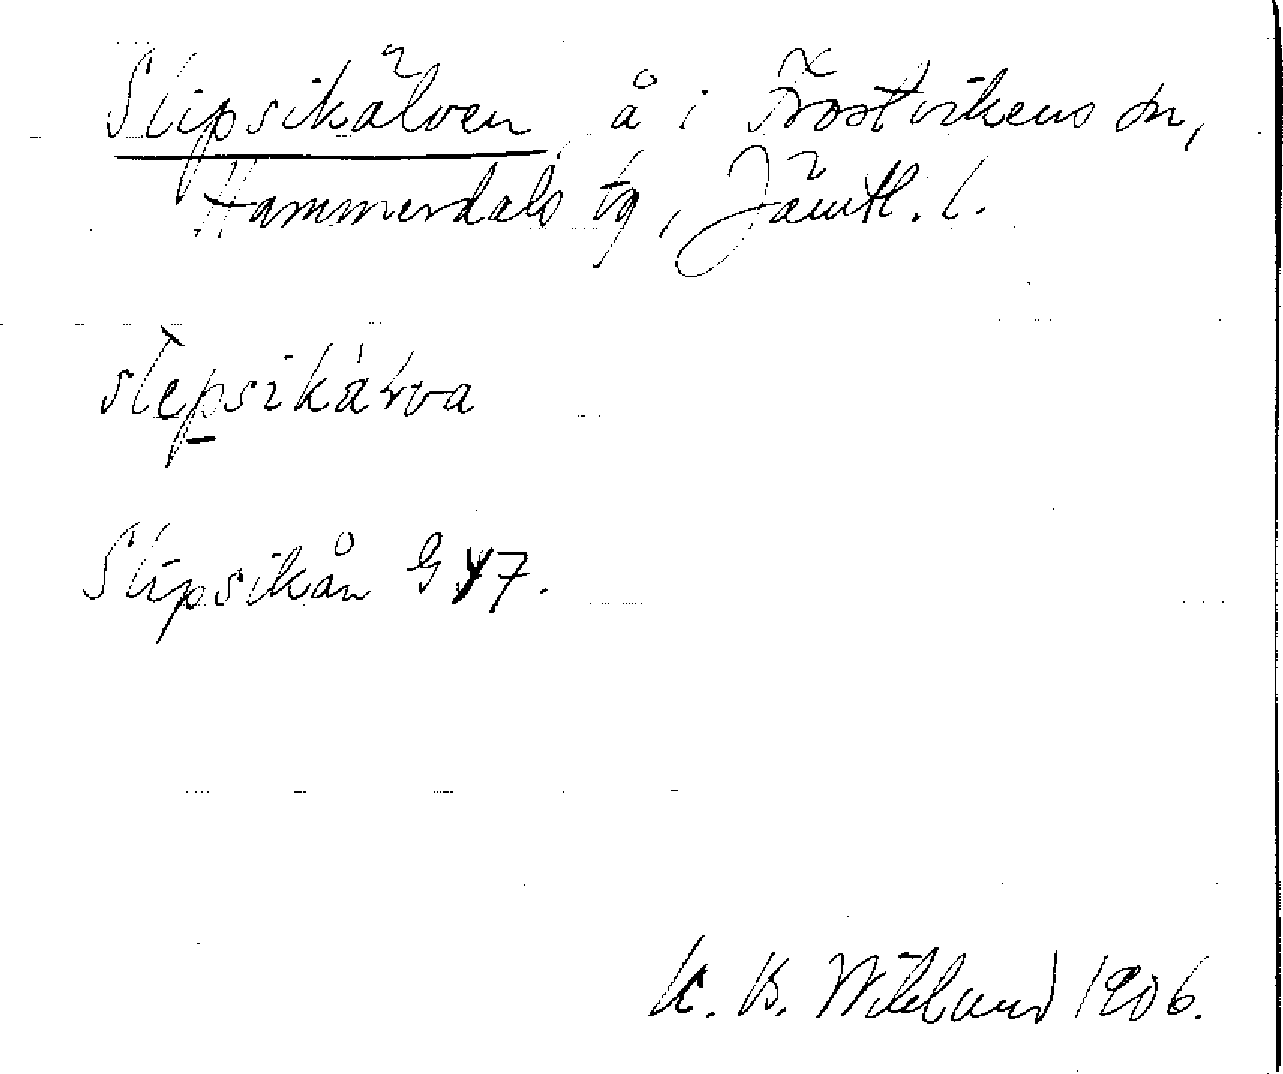 Slipsikälven, å i Frostvikens sn,
Hammerdals tg, Jämtl. l.
slepsikárva
Slipsikån G 47.
K. B. Wiklund 1906.